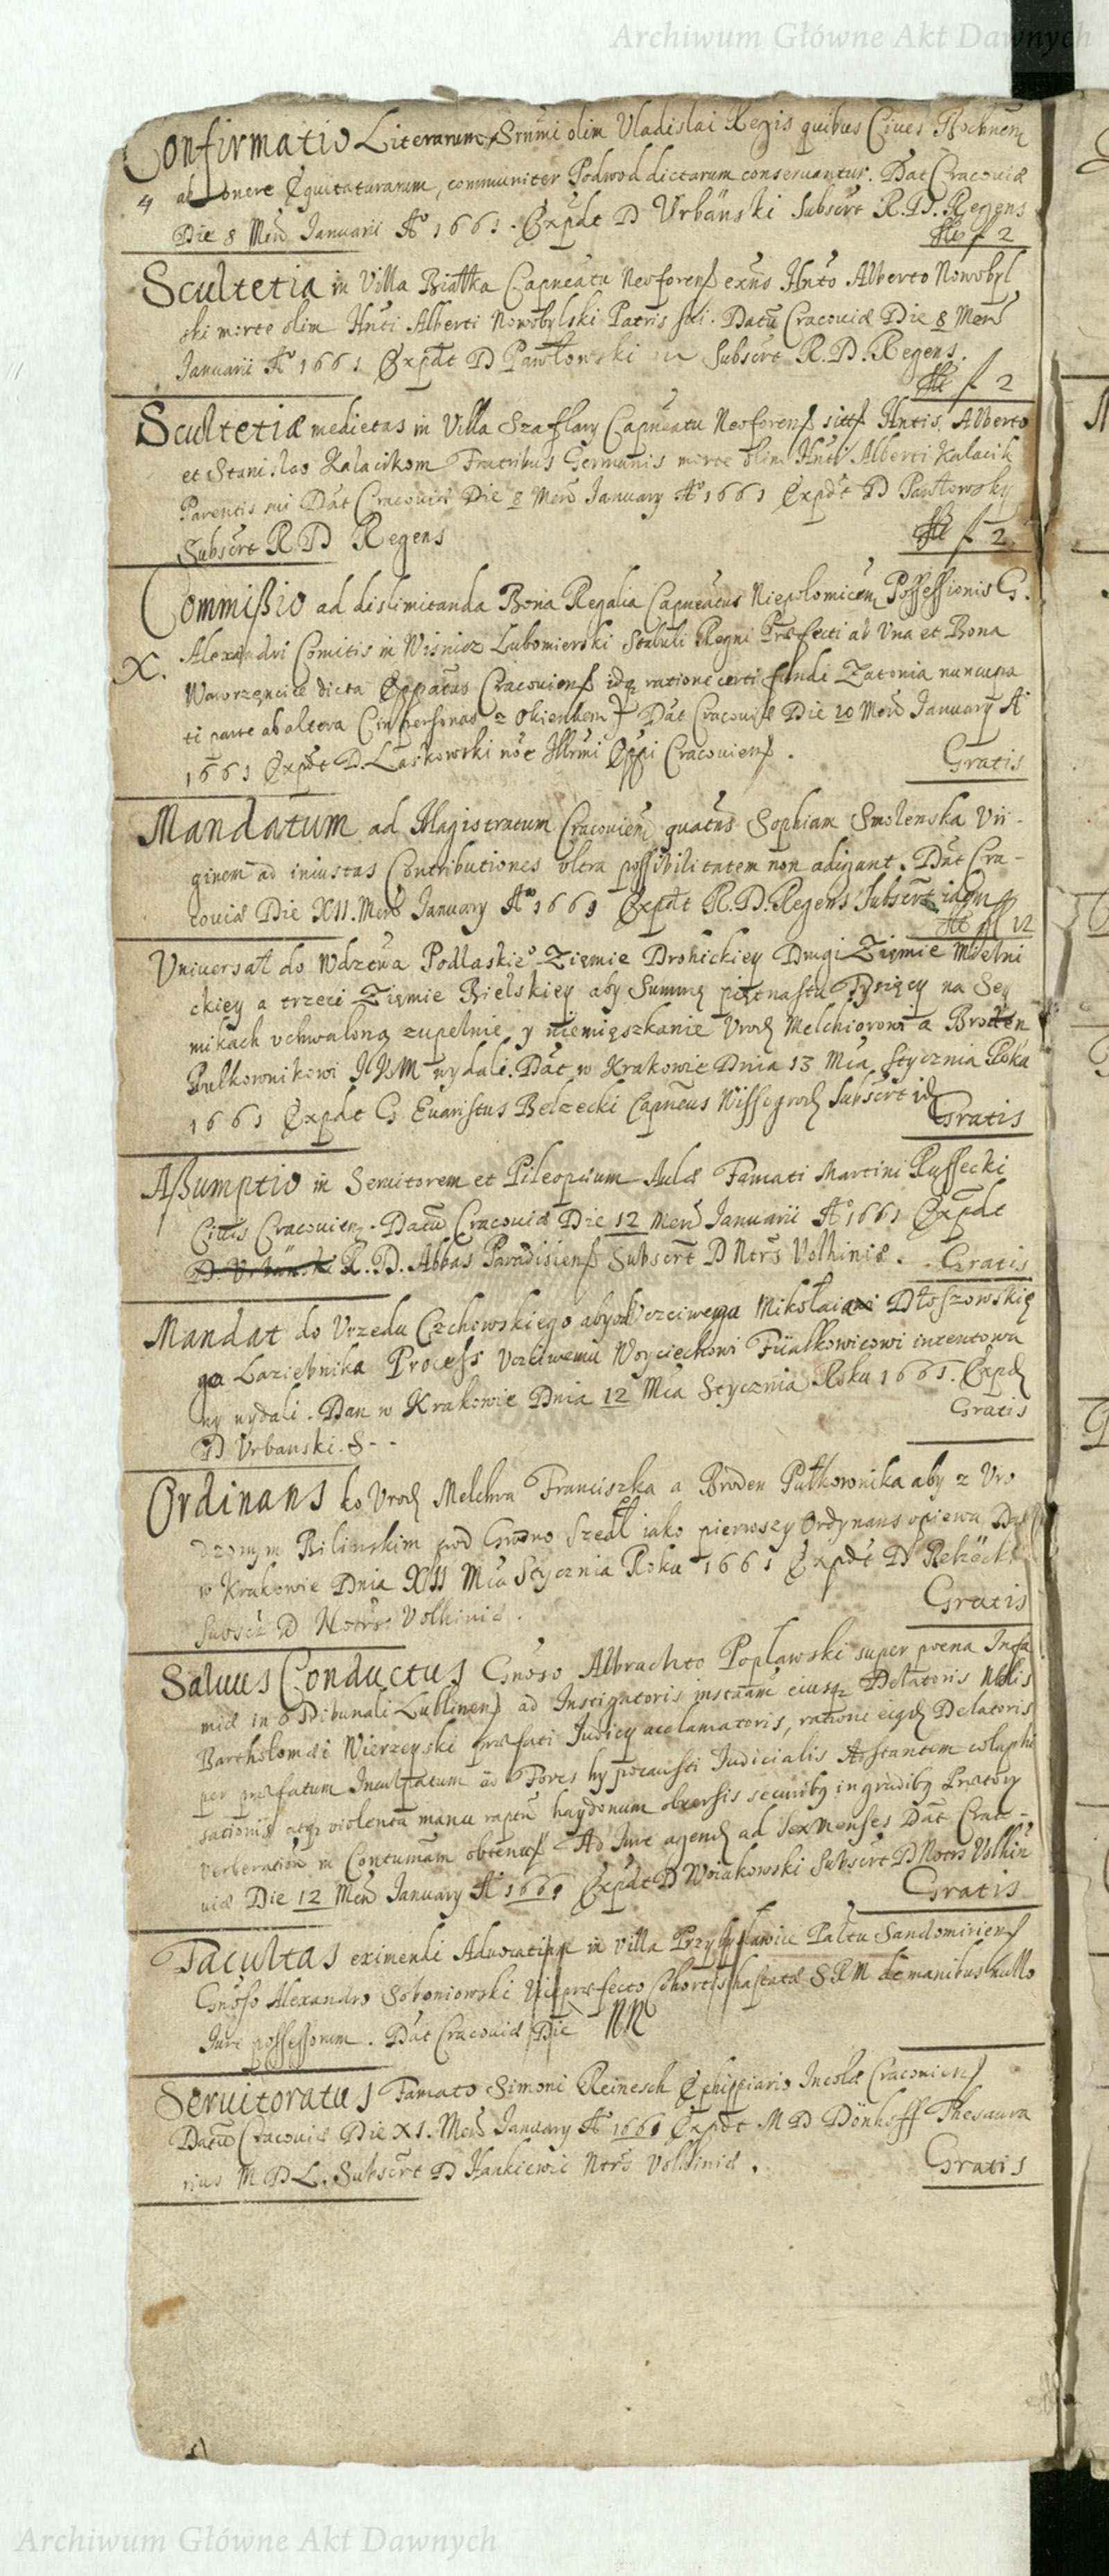 Archiwum Główne Akt Dawnych
Confirmatio Literarum Srnmi olim Vladislai Regis quibus Cives Bochnen
4 ab onere Equitaturarum, communiter Podwod dictarum conservantur. Dat Cracoviæ
Die 8 Men Januarii Aº 1661. Expdt D Urbański Subscrt R. D. Regens
f 2
Scultetia in Villa Białka Capneatu Neoforens exns Hnto Alberto Nowobyl
ski morte olim Hnti Alberti Nowobylski Patris sui. Datū Cracoviæ Die 8 Men
Januarii Aº 1661 Expdt D Pawłowski Subscrt R. D. Regens.
f 2
Scultetiæ medietas in Villa Szaflary Capneatu Neoforens Hntis Alberto
et Stanislao Kalacikom Fratribus Germanis morte olim Hnti Alberti Kalacik
Parentis sui Dat Cracoviæ Die 8 Men January Aº 1661 Expdt D Pawłowsky
Subscrt R D Regens
f 2
Commißio ad dislimitanda Bona Regalia Capneatus Niepolomicen Possessionis G.
X. Alexandri Comitis in Wisnicz Lubomierski Stabuli Regni Præfecti ab Una et Bona
Wawrzęncice dicta Eppatus Cracoviens idq ratione certi fundi Zatonia nuncupa
ti parte ab altera Cin personas z okienkem Dat Cracoviæ Die 20 Men January Aº
1661 Expdt D. Laskowski noe Illrmi Eppi Cracoviens.
Gratis
Mandatum ad Magistratum Cracovien quatns Sophiam Smolenska Vir-
ginem ad iniustas Contributiones ultra possibilitatem non adigant. Dat Cra-
coviæ Die XII. Men January Aº 1661 Expdt R. D. Regens Subscrt idem
12
Uniwersał do Wdztwa Podlaskiº Ziemie Drohickiey Drugi Ziemie Mielni
ckiey a trzeci Ziemie Bielskiey aby Summę piętnastu Tysięcy na Sey
mikach uchwaloną zupełnie y niemięszkanie Urodz Melchiorowi a Broden
Pułkownikowi JKM wydali. Dat w Krakowie Dnia 13 Mca Stycznia Roku
1661 Expdt G Evaristus Belzecki Capneus Wissogrodz Subscrt id
Gratis
Aßumptio in Servitorem et Pileopæum Aulæ Famati Martini Russecki
Civis Cracovien. Datū Cracoviæ Die 12 Men Januarii Aº 1661 Expdt
D. Urbanski R. D. Abbas Paradisiens Subscrt D Ntrs Volhiniæ. Gratis
Mandat do Urzedu Czchowskiego aby od Uczciwego Mikołaia Dłoszowskie
go Laziebnika Process Uczciwemu Woyciechowi Fiiałkowicowi intentowa
ny wydali. Dan w Krakowie Dnia 12 Mca Stycznia Roku 1661. Expd
Gratis
D Urbanski. S--
Ordinans do Urodz Melchra Franciszka a Broden Pułkownika aby z Uro
dzonym Bilinskim pod Grodno szedł iako pierwszy Ordynans opiewa Dat
w Krakowie Dnia XII Mca Stycznia Roku 1661 Expdt D Belzecki
Gratis
Subscr D Notrs Volhiniæ.
Salvus Conductus Gnoso Albrachto Popławski super poena Infa
miæ in Tribunali Lublinens ad Instigatoris instaam eiusq Delatoris Noblis
Bartholomæi Wierzeyski præfati Judicy acclamatoris, ratione eigd Delatoris
per præfatum Inculpatum ad Fores hypocausti Judicialis Astantem colaphi
sationis atq violenta manu raptū haydonum obversis securibq in gradibq Prætory
verberation in Contumam obtenus Ad Jure agend ad sex menses Dat Craco
viæ Die 12 Men January Aº 1661 Expdt D Woiakowski Subscrt D Notrs Volhin
Gratis
Facultas eximendi Advocatiam in villa Przybysławice Paltu Sandomiriens
Gnoso Alexandro Soboniowski Vicepræfecto Cohortis hastatæ S R M de manibus nullo
Jure possessorum. Dat Cracoviæ Die NN
Servitoratus Famato Simoni Reinesch Ephippiario Incolæ Cracoviens
Datū Cracoviæ Die XI. Men January Aº 1661 Expdt M D Dönhoff Thesaura
rius M D L. Subscrt D Hankiewic Ntrs Volhiniæ.
Gratis
Archiwum Główne Akt Dawnych